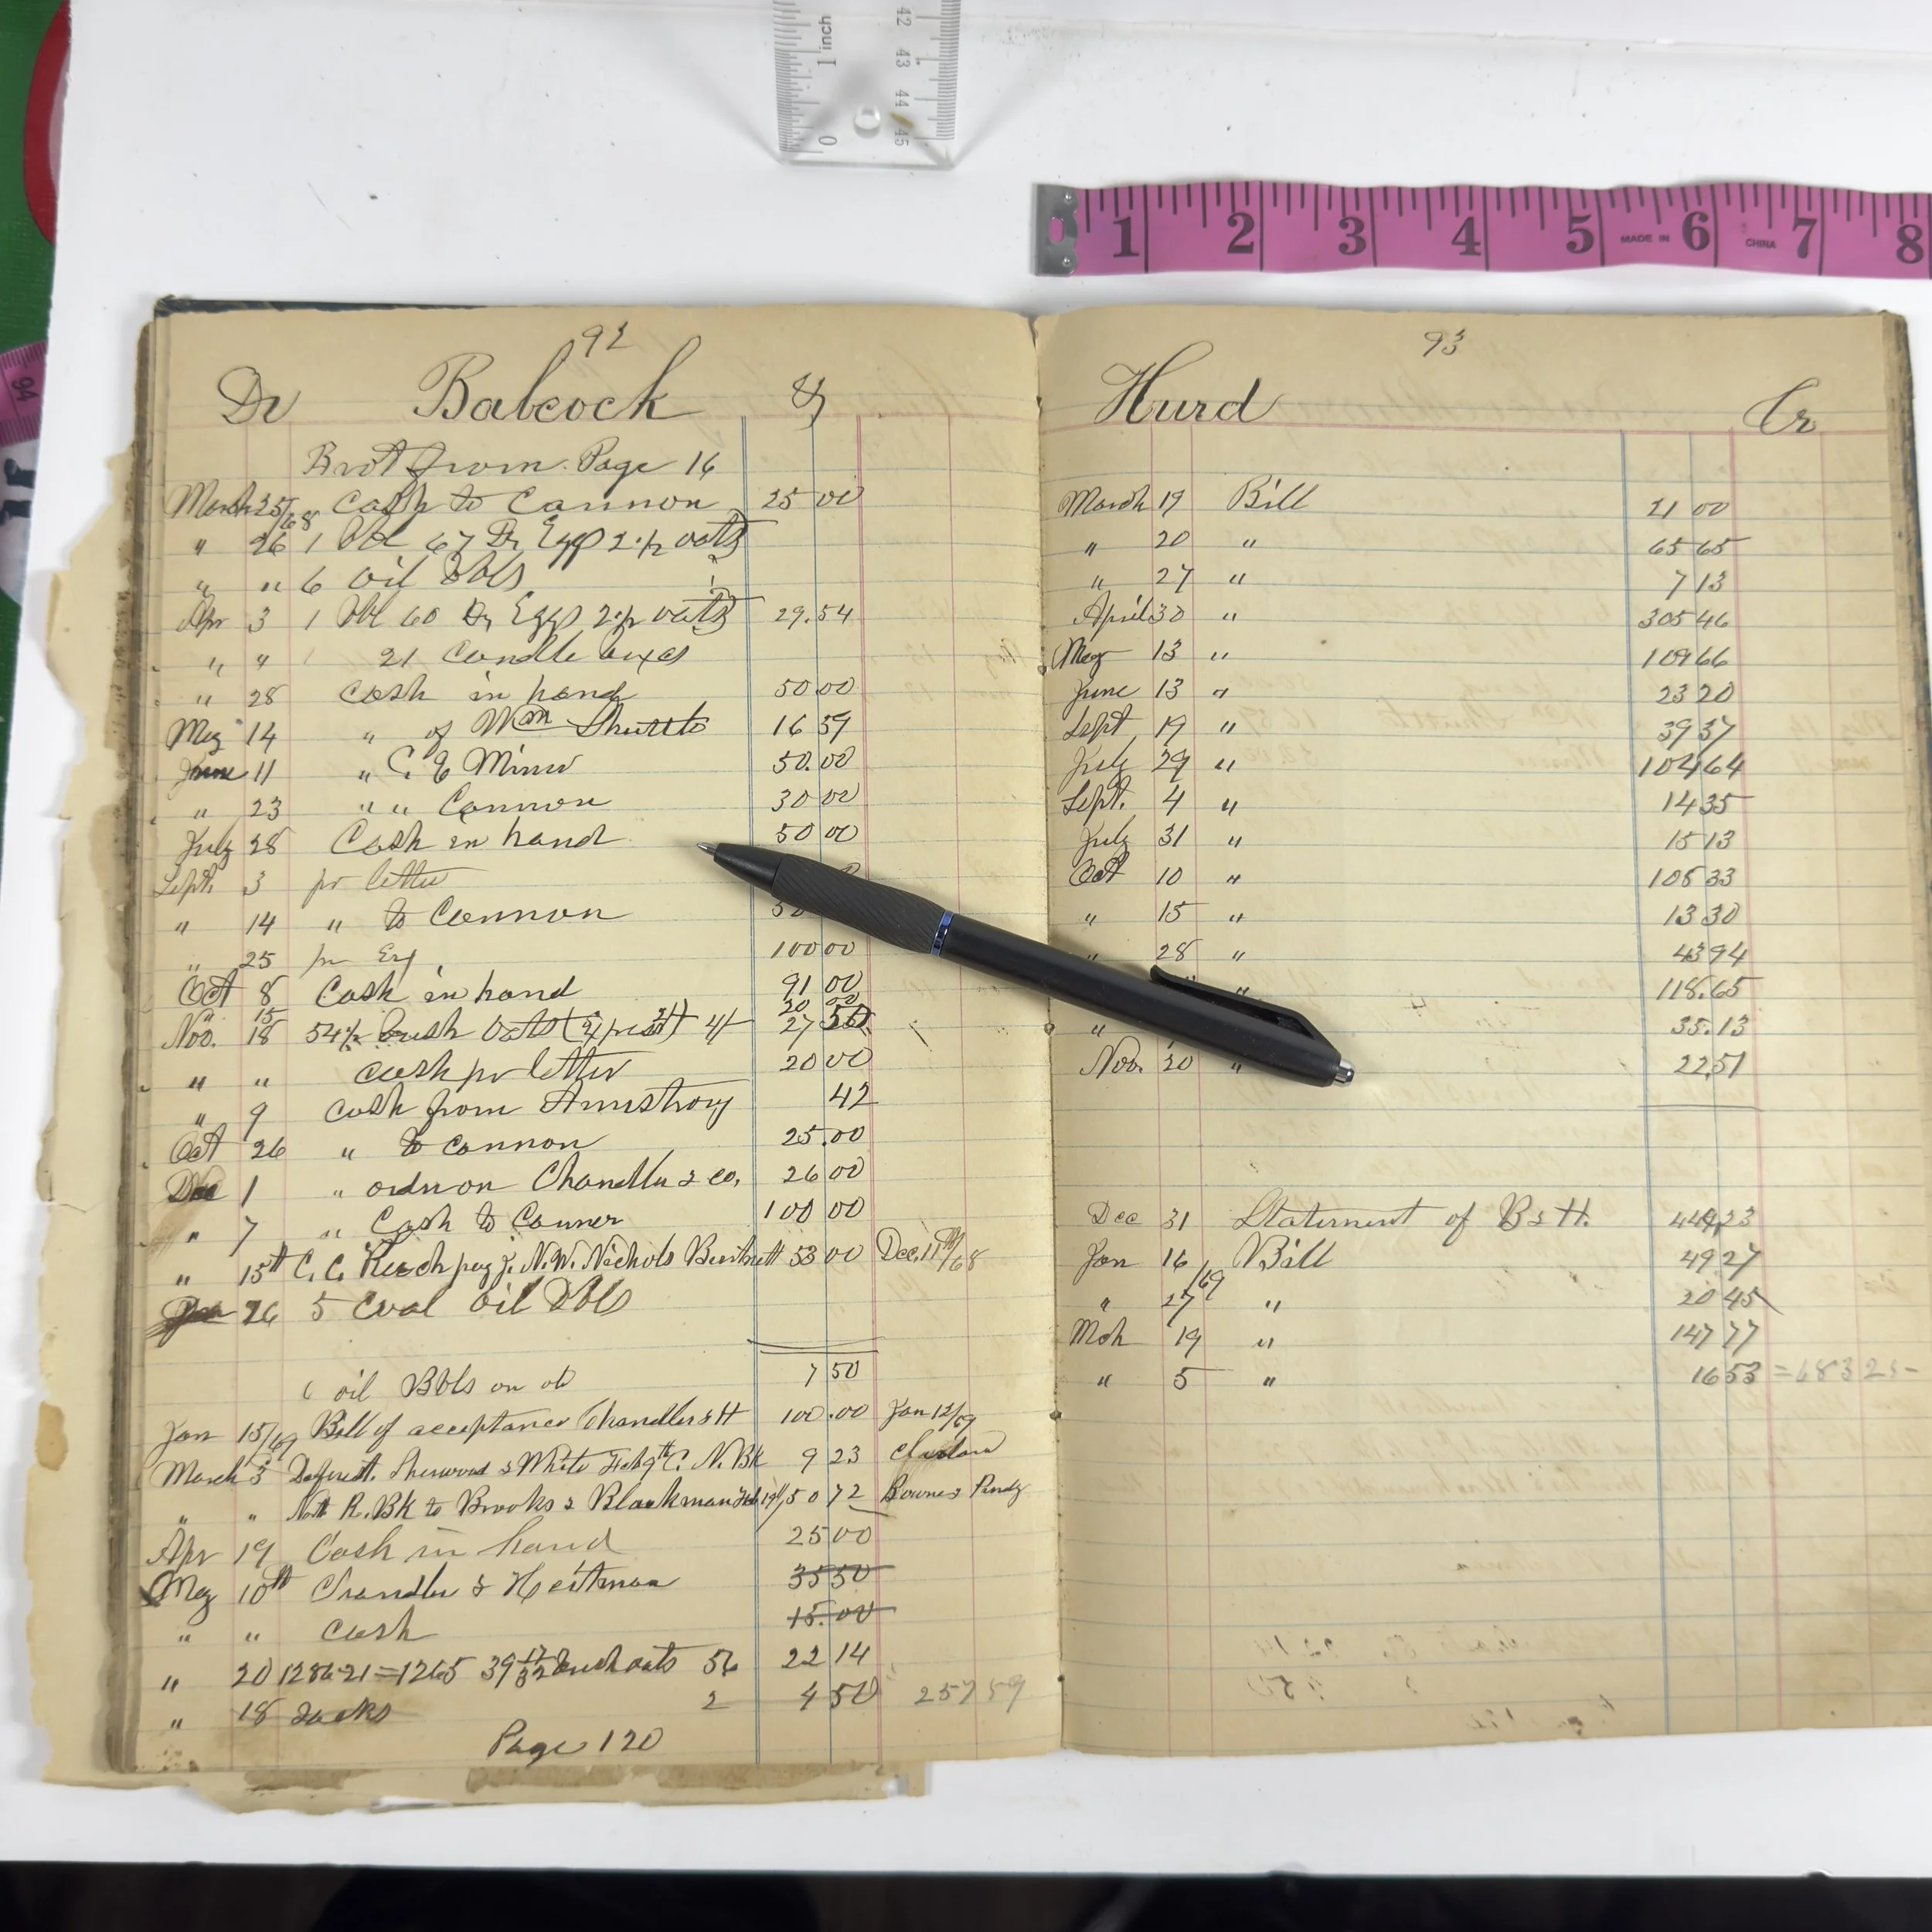 1 inch
0
42
43
44
45
1 2 3 4 5 MADE IN 6 CHINA 7 8
94
92
Dr Babcock &
Brot from Page 16
March 25/68 Cash to Cannon 25 00
" 26 1 Bbl 67 Dz Eggs 2 pr oats
" " 6 oil Bbls
Apr 3 1 Bbl 60 Dz Eggs 2 pr oats 29.54
" " 21 Candle boxes
" 28 Cash in hand 50 00
May 14 " of Wm Shuttts 16 39
June 11 " C. E Minor 50.00
" 23 " " Cannon 30 00
July 28 Cash in hand 50 00
Sept. 3 pr letter
" 14 " to Cannon
" 25 pr Ex 100 00
Oct 8 Cash in hand 91 00
" 15 20 00
Nov. 18 54½ bush Oats 4/ 27 50
" " cash pr letter 20 00
" 9 cash from Armstrong 42
Oct 26 " to Cannon 25.00
Dec 1 " order on Chandler & co. 26 00
" 7 " Cash to Conner 100 00
" 15th C. C. pay J. N. W. Nichols 53 00 Dec. 11th/68
26 5 Coal Oil Bbls
6 oil Bbls on ob 7 50
Jan 15/69 Bill of acceptance Chandler & H 100.00 Jan 12/69
March 3 Deforest. Sherwood & White Feb 9th C. N. Bk 9 23
" " Nott R. Bk to Brooks & Blackman Feb 19th, 50 72 Bowne &
Apr 19 Cash in hand 25 00
May 10th Chandler & Heitman 35 50
" " Cash 15.00
" 20 1286-21=1265 39 17/32 bush oats 56 22 14
" 18 sacks 2 4 50 257 59
Page 120
93
Hurd Cr
March 19 Bill 21 00
" 20 " 65 65
" 27 " 7 13
April 30 " 305 46
May 13 " 109 66
June 13 " 23 20
Sept 19 " 39 37
July 29 " 104 64
Sept. 4 " 14 35
July 31 " 15 13
Oct 10 " 105 33
" 15 " 13 30
" 28 " 43 94
" 118.65
" 35.13
Nov. 20 " 22 51
Dec 31 Statement of B & H. 449,23
Jan 16/69 Bill 49 27
" 27 " 20 45
Mch 19 " 147 77
" 5 " 16 53 = 683 25